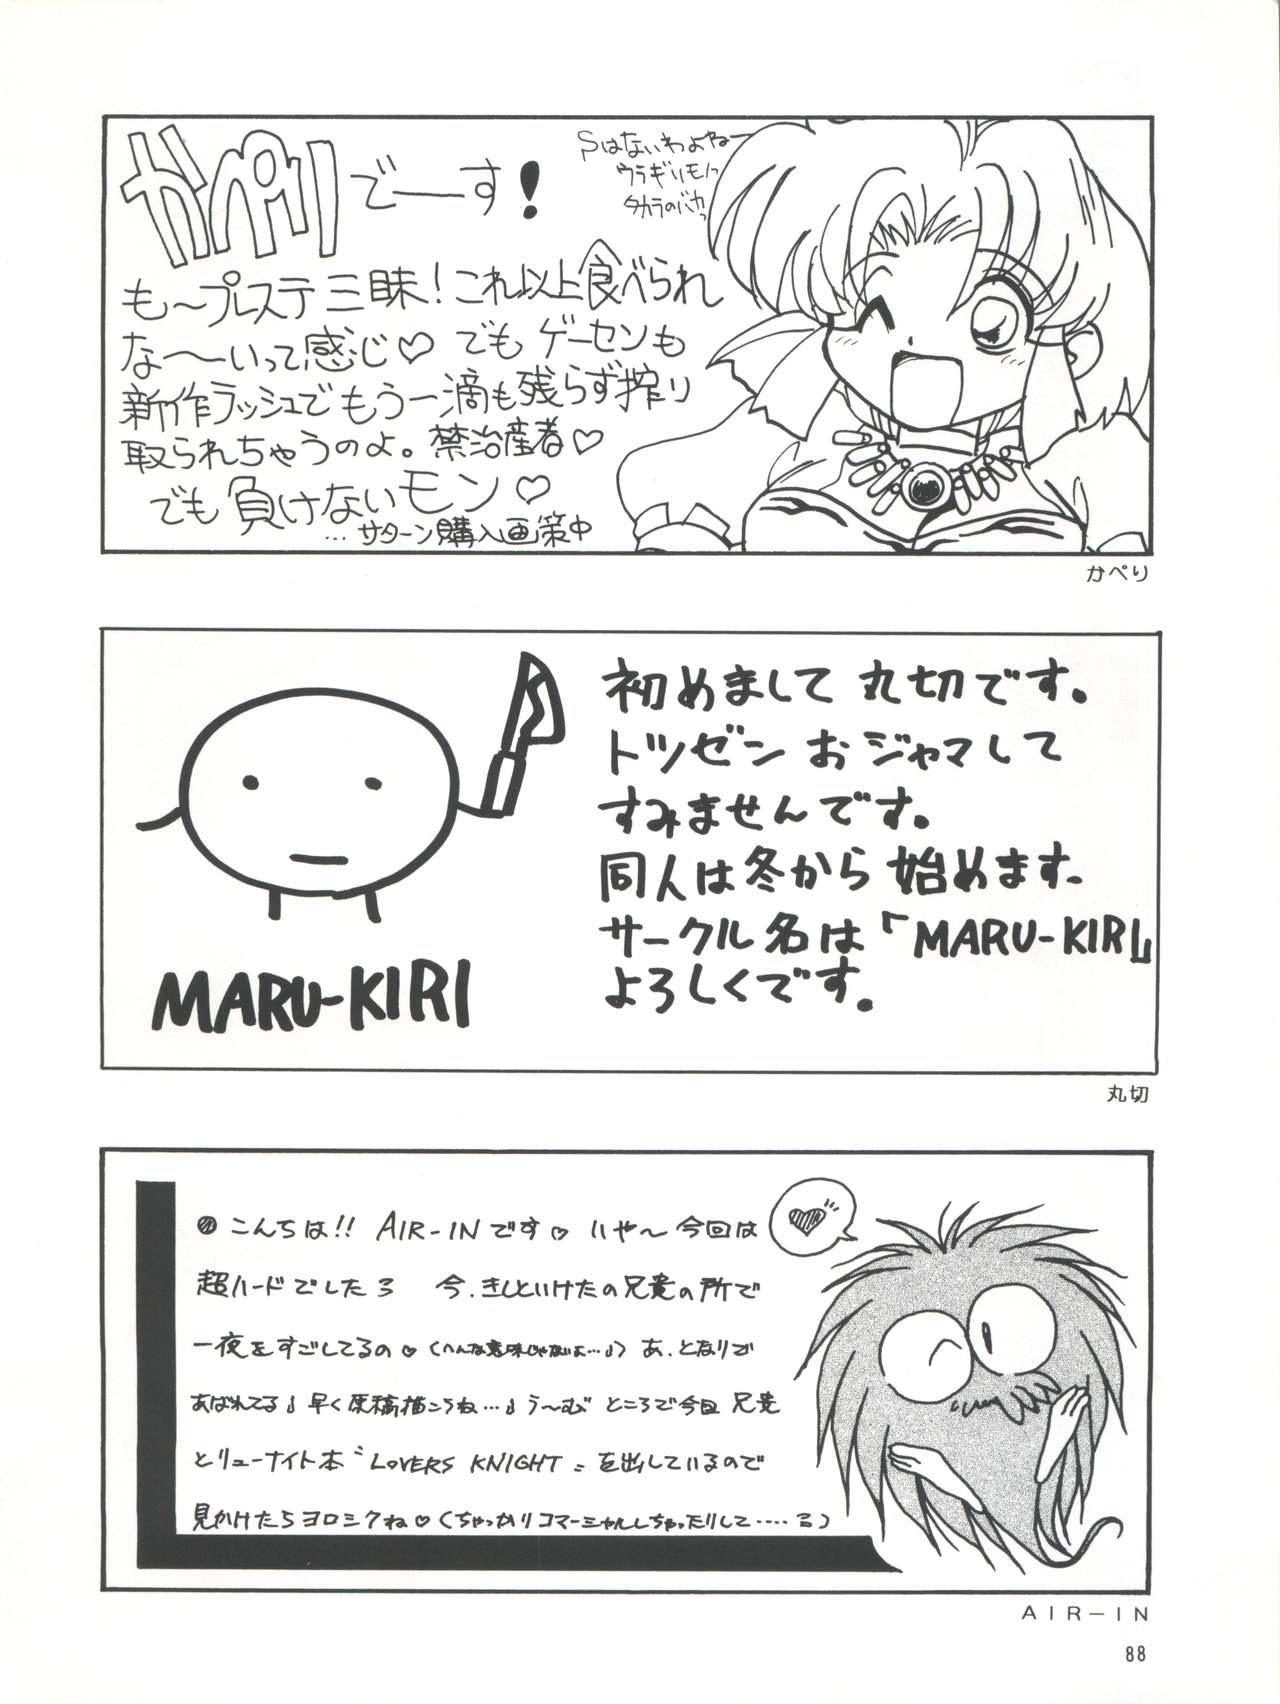 かぺりでーす!
Sはないわよねー
ウラギリモノッ
タカラのバカっ
も〜プレステ三昧!これ以上食べられ
な〜〜いって感じ♡でもゲーセンも
新作ラッシュでもう一滴も残らず搾り
取られちゃうのよ。禁治産者♡
でも負けないモン♡
…サターン購入画策中
かぺり
初めまして丸切です。
トツゼンおジャマして
すみませんです。
同人は冬から始めます。
サークル名は「MARU-KIRI」
よろしくです。
MARU-KIRI
丸切
こんちは!! AIR-INです♡ いや〜今回は
超ハードでしたろ 今、きしといけたの兄貴の所で
一夜をすごしてるの♡(へんな意味じゃないよ…♪)あ、となりで
あばれてる♪早く原稿描こうね…♪う〜むところで今回兄貴
とリューナイト本〝LOVERS KNIGHT〟を出しているので
見かけたらヨロシクね♡(ちゃっかりコマーシャルしちゃったりして……ろ)
AIR-IN
88